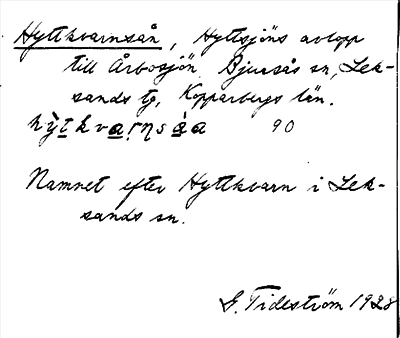 Hyttkvarnsån, Hyttsjöns avlopp
till Årbosjön. Bjursås sn, Lek-
sands tg, Kopparbergs län.
hy̆tkvaɳsa̍a 90
Namnet efter Hyttkvarn i Lek-
sands sn.
G. Tideström 1928